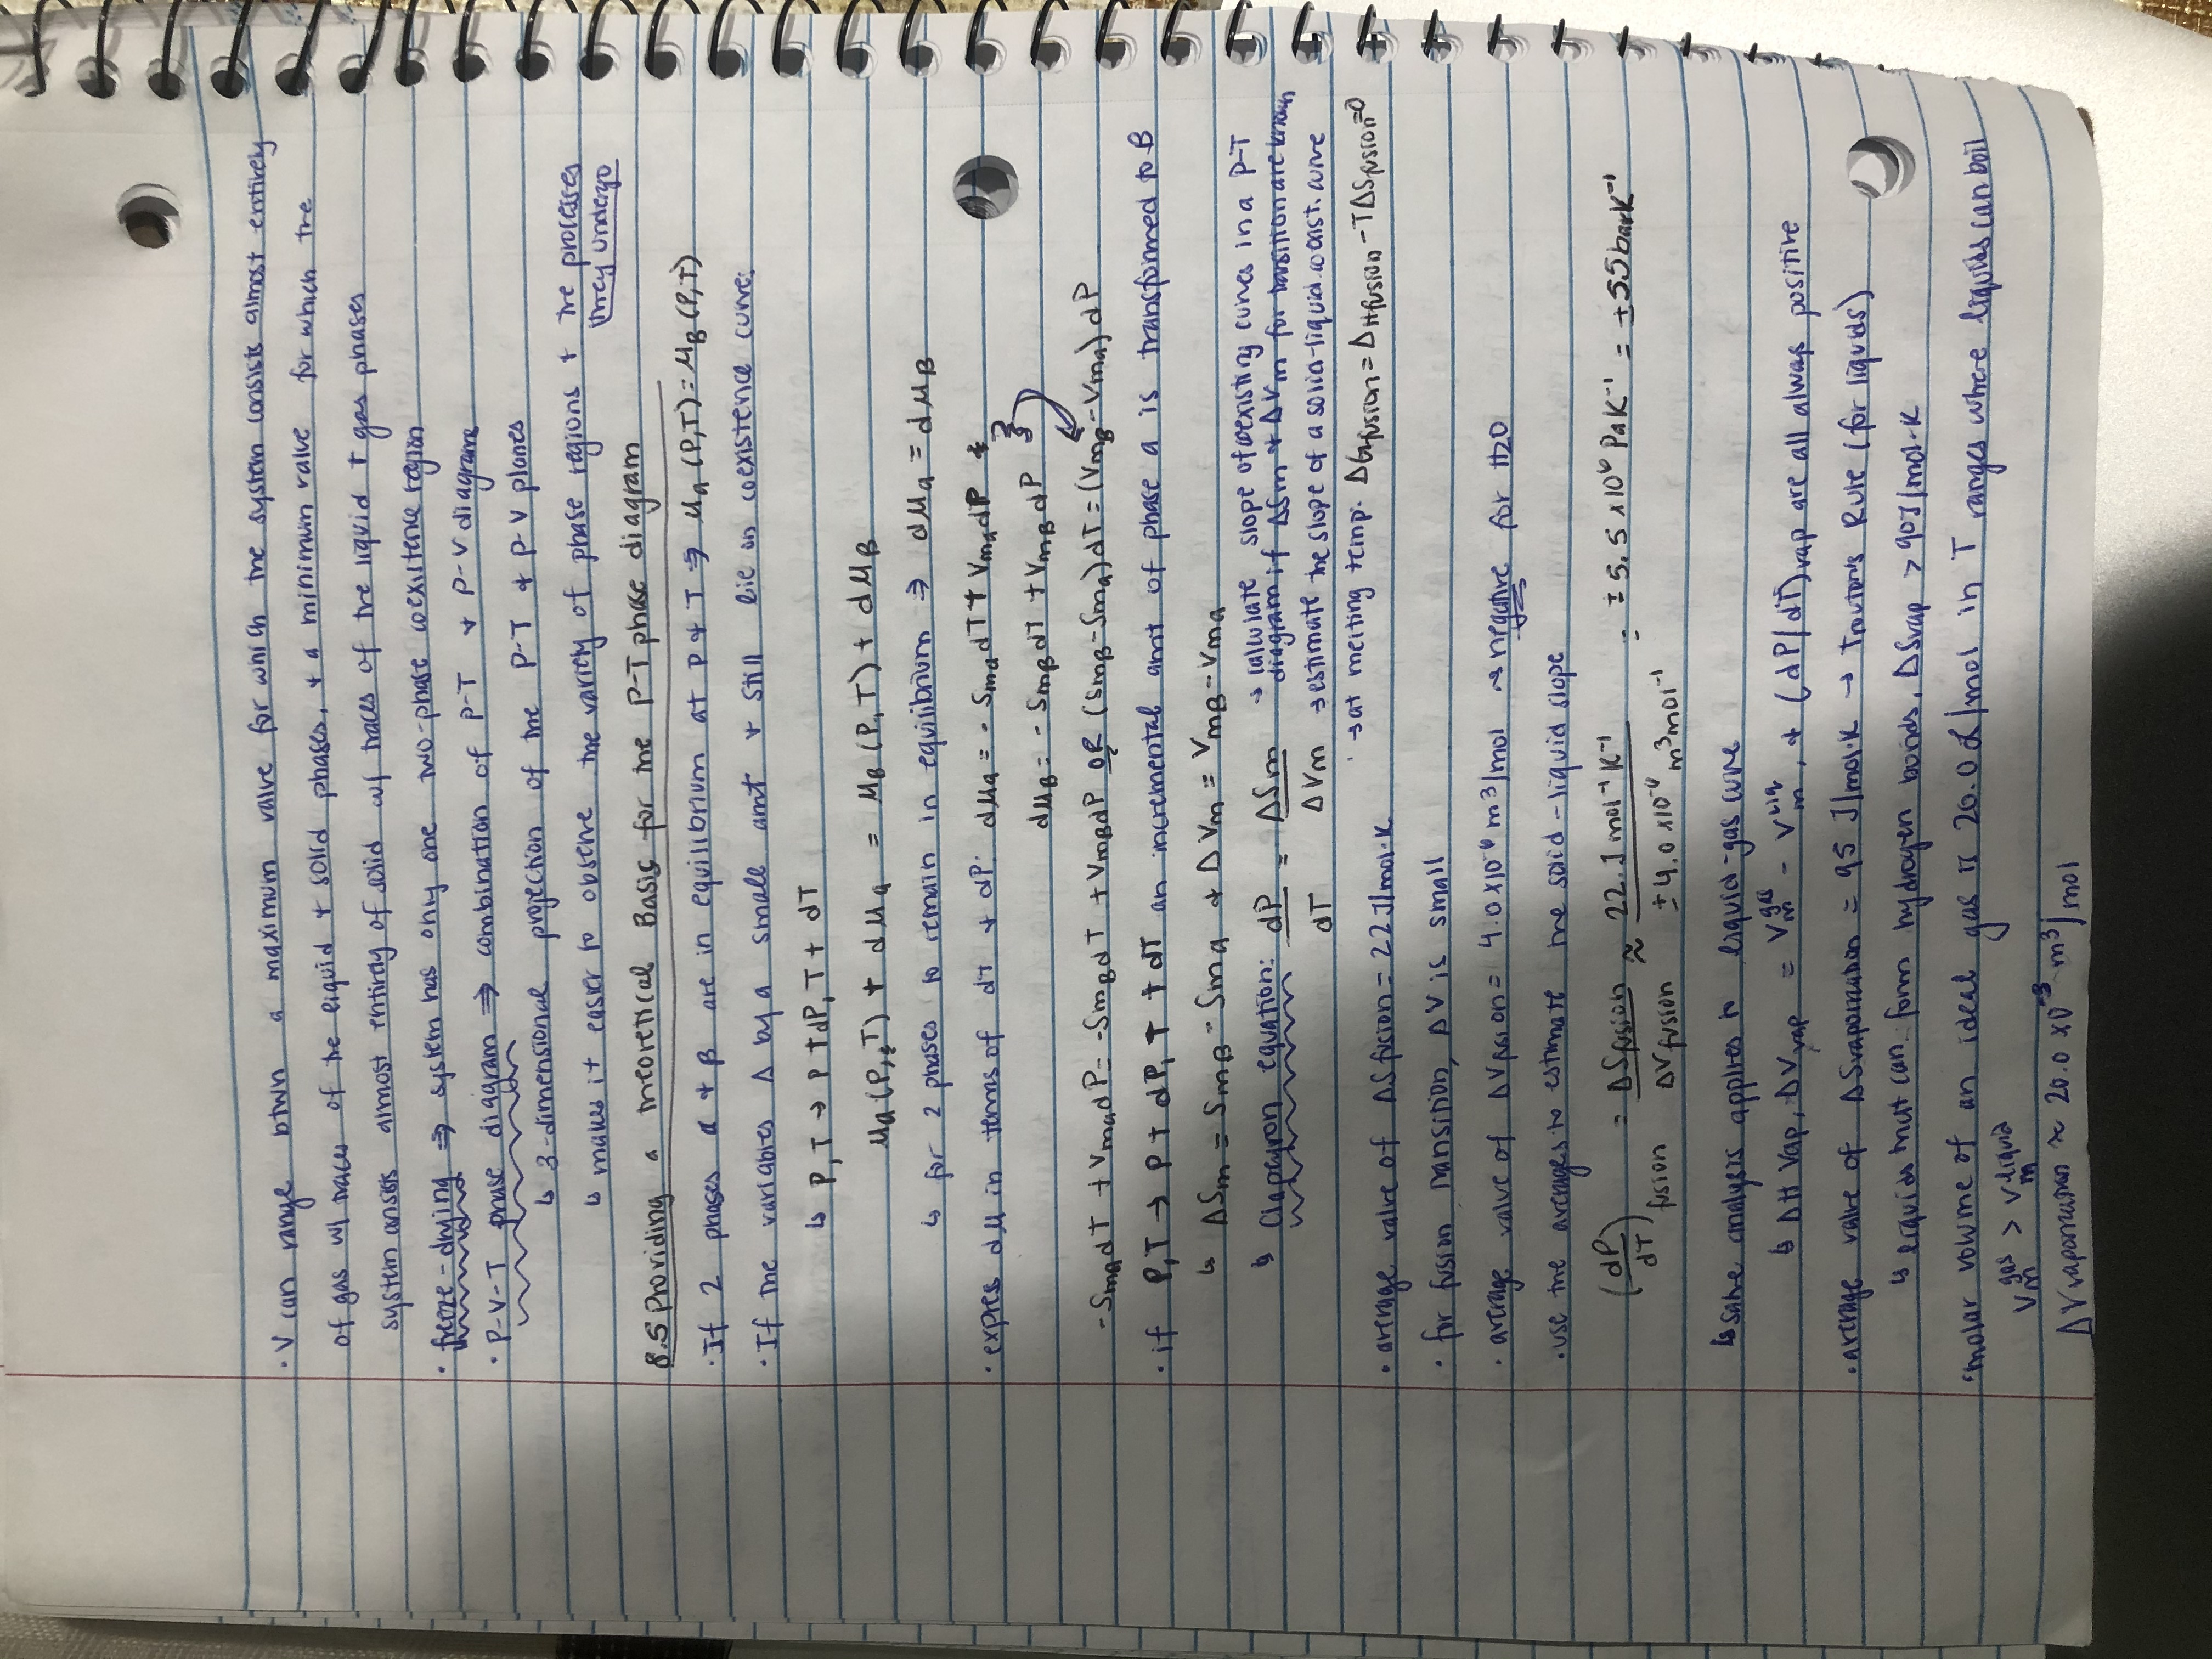 · V can range btwn a maximum value for which the system consists almost entirely
of gas w/ traces of the liquid + solid phases, + a minimum value for which the
system consists almost entirely of solid w/ traces of the liquid + gas phases
· freeze-drying ⇒ system has only one two-phase coexistence region
· P-V-T phase diagram ⇒ combination of P-T + P-V diagrams
↳ 3-dimensional projection of the P-T + P-V planes
↳ makes it easier to observe the variety of phase regions + the processes
they undergo
8.5 Providing a theoretical Basis for the P-T phase diagram
· If 2 phases α + β are in equilibrium at P + T ⇒ μα (P,T) = μβ (P,T)
· If the variables Δ by a small amt + still lie on coexistence curve:
↳ P, T → P + dP, T + dT
μα (P, T) + dμα = μβ (P, T) + dμβ
↳ for 2 phases to remain in equilibrium ⇒ dμα = dμβ
· express dμ in terms of dT + dP: dμα = - Smα dT + Vmα dP +
dμβ = - Smβ dT + Vmβ dP
-Smα dT + Vmα dP = -Smβ dT + Vmβ dP OR (Smβ - Smα) dT = (Vmβ - Vmα) dP
· if P, T → P + dP, T + dT an incremental amt of phase α is transformed to β
↳ ΔSm = Smβ - Smα + ΔVm = Vmβ - Vmα
↳ Clapeyron equation: dP/dT = ΔSm/ΔVm → calculate slope of coexisting curves in a P-T
diagram if ΔSm + ΔVm for transition are known
→ estimate the slope of a solid-liquid coexist. curve
→ at melting temp. ΔGfusion = ΔHfusion - TΔSfusion = 0
· average value of ΔSfusion = 22 J/mol·K
· for fusion transition, ΔV is small
· average value of ΔVfusion = 4.0 x 10⁻⁶ m³/mol → negative for H2O
· use the averages to estimate the solid-liquid slope
(dP/dT)fusion = ΔSfusion/ΔVfusion ≈ 22. J mol⁻¹ K⁻¹/±4.0 x 10⁻⁶ m³ mol⁻¹ = ±5.5 x 10⁶ Pa K⁻¹ = ±55 bar K⁻¹
↳ same analysis applies to liquid-gas curve
↳ ΔH vap, ΔVvap = Vm gas - Vm liq, + (dP/dT)vap are all always positive
· average value of ΔSvaporization = 95 J/mol·K → Trouton's Rule (for liquids)
↳ liquids that can form hydrogen bonds, ΔSvap > 90 J/mol·K
· molar volume of an ideal gas is 20.0 L/mol in T ranges where liquids can boil
Vm gas > Vm liquid
ΔVvaporization ≈ 20.0 x10⁻³ m³/mol